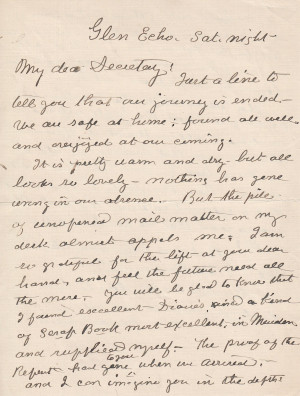 Glen Echo. Sat. night-
My dear Secretary!
Just a line to
tell you that our journey is ended-
We are safe at home; found all well
and rejoiced at our coming.
It is pretty warm and dry- but all
looks so lovely- nothing has gone
wrong in our absence. But the pile
of unopened mail matter on my
desk almost appals me. I am
so grateful for the lift at your dear
hands, and feel the future need all
the more. You will be glad to know that
I found excellent Diaries, and a kind
of Scrap Book most excellent, in
and supplied myself- The proof of the
Report had gone to you when we arrived.
and I can imagine you in the depths